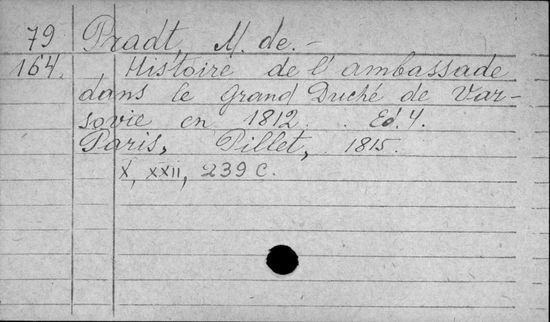 79 Pradt, M. de. –
164. Histoire de l'ambassade
dans le Grand Duché de Var-
sovie en 1812. Ed. 4.
Paris, Pillet, 1815.
X, XXII, 239 C.